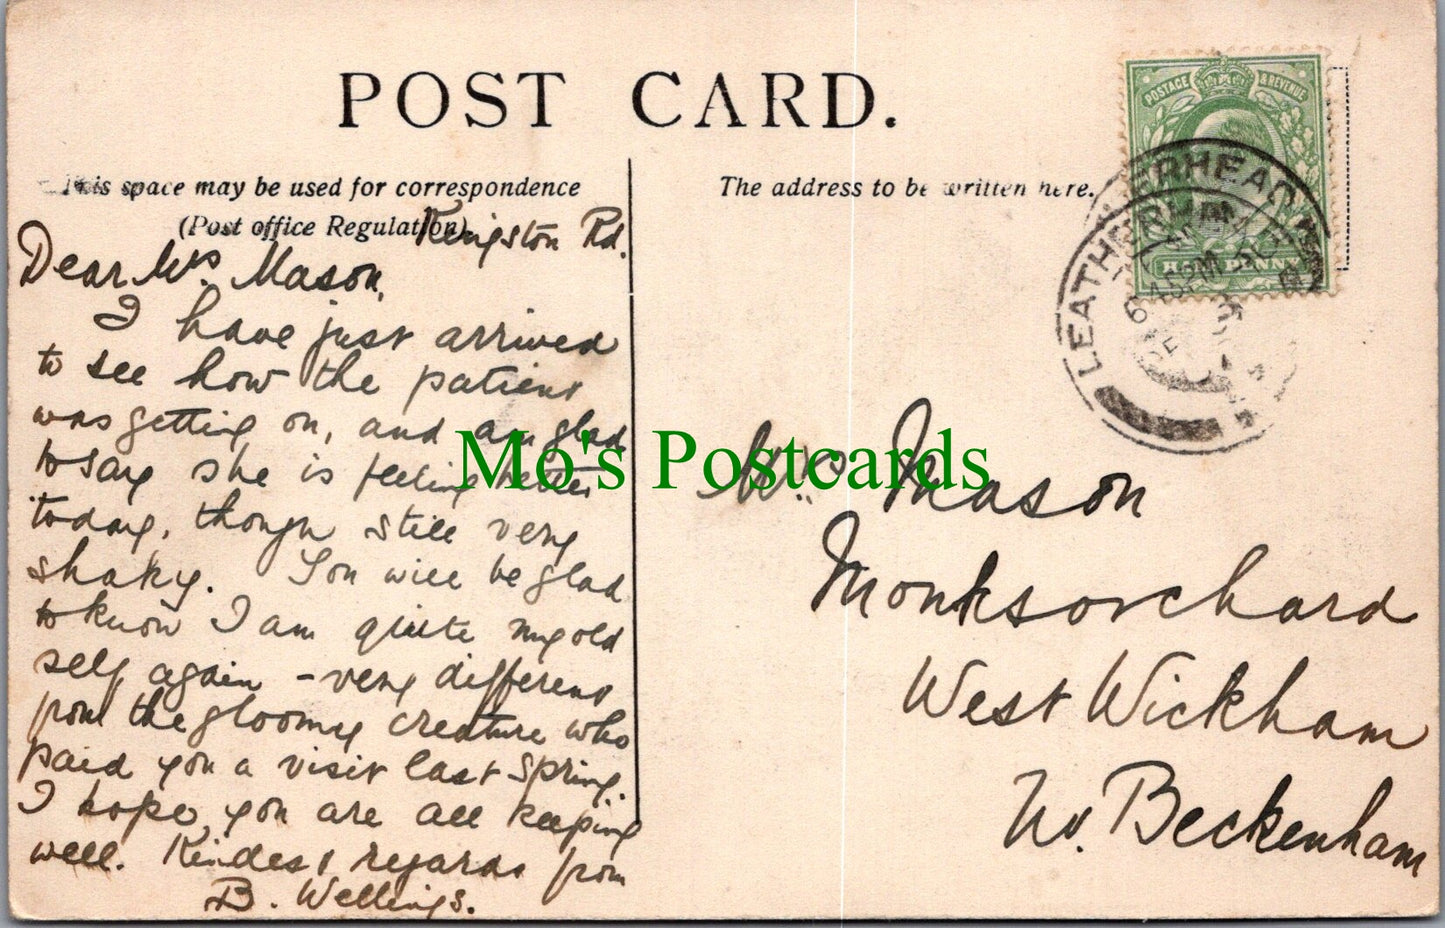 POST CARD.
This space may be used for correspondence
(Post office Regulation).
The address to be written here.
Kingston Rd.
Dear Mrs. Mason,
I have just arrived
to see how the patient
was getting on, and am glad
to say she is feeling better
today, though still very
shaky. You will be glad
to know I am quite my old
self again – very different
from the gloomy creature who
paid you a visit last Spring.
I hope you are all keeping
well. Kindest regards from
B. Wellings.
POSTAGE & REVENUE
HALFPENNY
LEATHERHEAD
Mrs. Mason
Monksorchard
West Wickham
Nr. Beckenham
Mo's Postcards